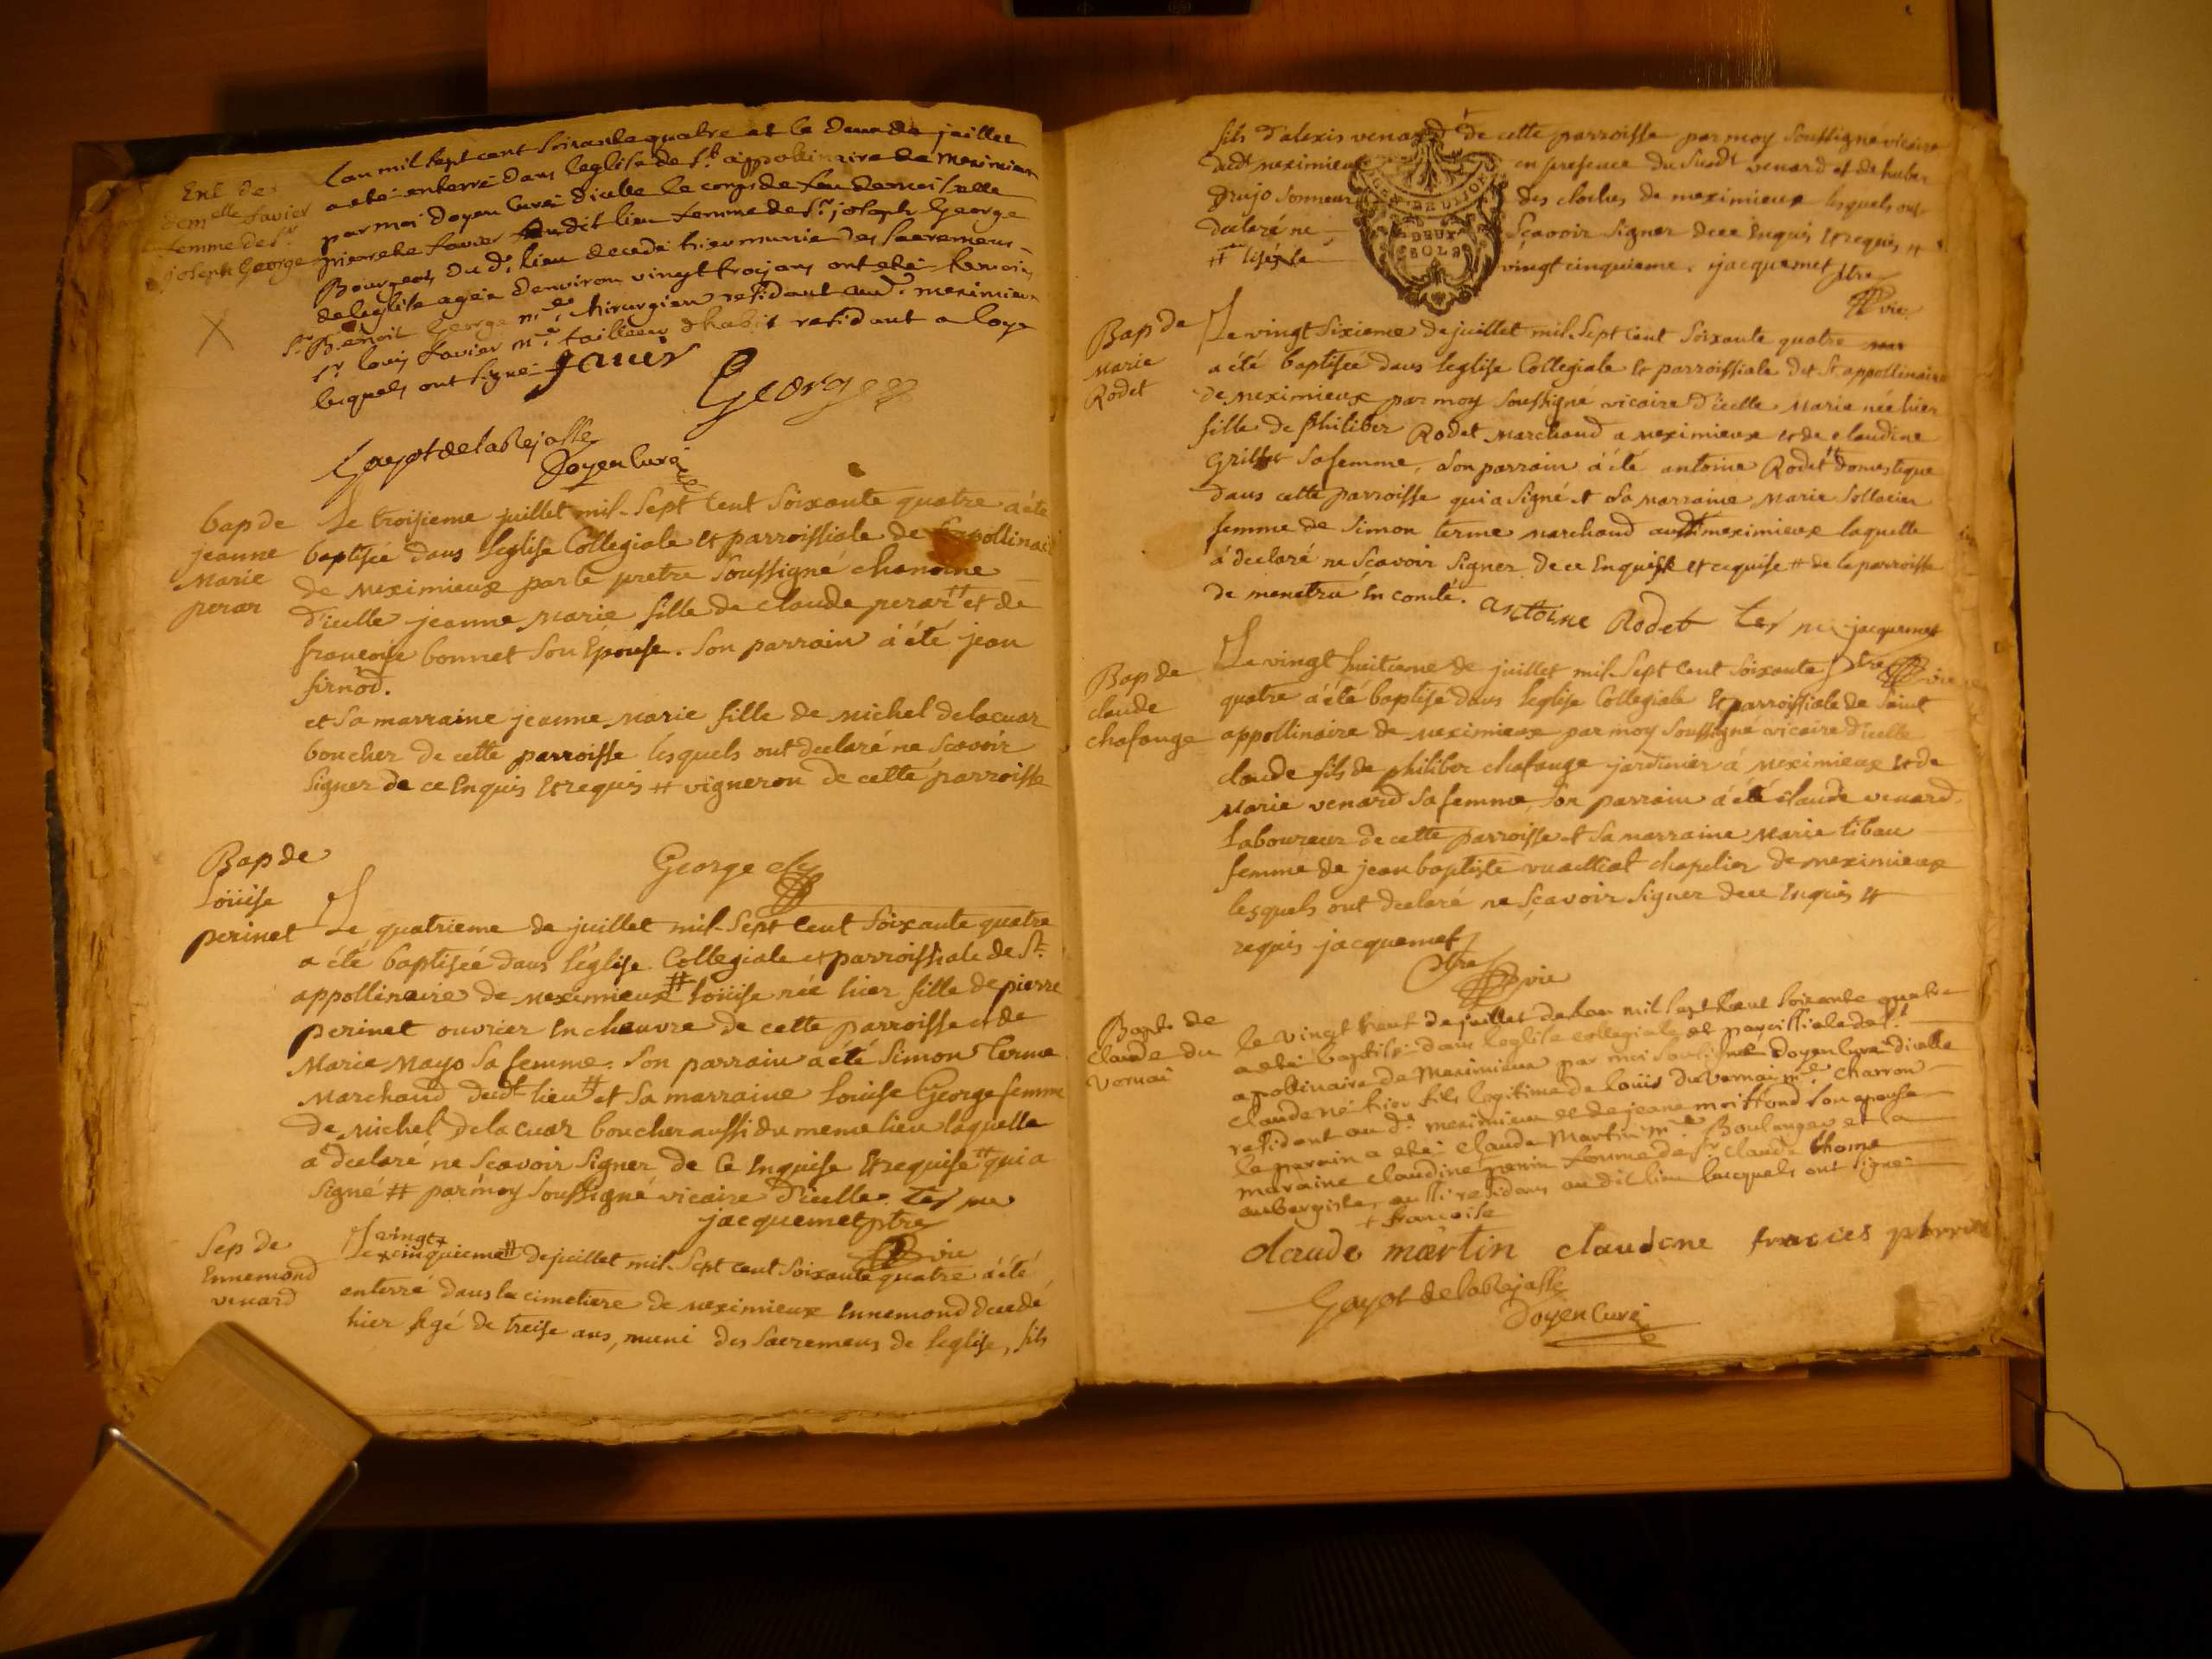 Ent de
dem^elle favier
femme de s^r
joseph George
Lan mil sept cent soixante quatre et le deux de juillet
a eté enterré dans leglise de s^t appollinaire de meximieux
par moi doyen curé dicelle le corps de feu demoiselle
favier dudit lieu femme de s^r joseph George
Bourgeois du d^t lieu decedé hier munie des sacremens
de leglise agée denviron vingt trois ans ont eté temoins
s^r Benoit George m^e chirurgien residant aud^t meximieux
s^r louis favier m^e tailleur dhabit residant a loye
lesquels ont signé favier
George
Gayot de la Rejasse
Doyen Curé
bap de
jeanne
Marie
perar
Le troisieme juillet mil-sept cent soixante quatre a été
baptisée dans leglise Collegiale et parroissiale de st appollinaire
de meximieux par le pretre soussigné chanoine
d'icelle jeanne Marie fille de claude perar # et de
francoise bonnet son épouse. son parrain a été jean
et sa marraine jeanne Marie fille de michel delacuar
boucher de cette parroisse lesquels ont declaré ne scavoir
signer de ce enquis et requis # vigneron de cette parroisse
George
Bap de
Loüise
perinet
Le quatrieme de juillet mil-sept cent soixante quatre
a été baptisée dans l'église Collegiale et parroissiale de st
appollinaire de meximieux # loüise née hier fille de pierre
perinet ouvrier en chanvre de cette parroisse et de
Marie Mayo sa femme. son parrain a été Simon terme
Marchand dud^t lieu # et sa marraine Louise George femme
de michel delacuar boucher aussi du meme lieu laquelle
a declaré ne scavoir signer de ce enquise et requise # qui a
signé # par moy soussigné vicaire d'icelle. Terme
jacquemet ptre
vic
Sep de
Ennemond
venard
vingt
Le cinquieme # de juillet mil-sept cent soixante quatre a été
enterré dans le cimetiere de meximieux Ennemond decedé
hier agé de treise ans, muni des sacremens de leglise, fils
fils d'alexis venard de cette parroisse par moy soussigné vicaire
dud^t meximieux en presence du susd^t venard et de huber
Drujo sonneur des cloches de meximieux lesquels ont
declaré ne sçavoir signer de ce enquis et requis #
# vingt cinquieme. jacquemet ptre
vic
DEUX
SOLS
Bap de
Marie
Rodet
Le vingt sixieme de juillet mil-sept cent soixante quatre
a été baptisée dans leglise Collegiale et parroissiale de st appollinaire
de meximieux par moy soussigné vicaire d'icelle Marie née hier
fille de philiber Rodet Marchand a meximieux et de claudine
sa femme, son parrain a été antoine Rodet # domestique
dans cette parroisse qui a signé et sa marraine Marie
femme de Simon terme Marchand aud^t meximieux laquelle
a declaré ne scavoir signer de ce enquise et requise # de la parroisse
de menetru en comté. antoine Rodet jacquemet
ptre vic
Bap de
claude
chafange
Le vingt huitieme de juillet mil-sept cent soixante
quatre a été baptisé dans leglise Collegiale et parroissiale de saint
appollinaire de meximieux par moy soussigné vicaire d'icelle
claude fils de philiber chafange jardinier à meximieux et de
Marie venard sa femme. son parrain a été claude venard
laboureur de cette parroisse et sa marraine Marie tibau
femme de jean baptiste chapelier de meximieux
lesquels ont declaré ne sçavoir signer de ce enquis et
requis jacquemet
ptre vic
Bapt. de
claude du
vernai
le vingt huit de juillet de lan mil sept cent soixante quatre
a eté baptisé dans leglise collegiale et paroissiale de s^t
apollinaire de Meximieux par moi soussigné doyen curé dicelle
claude né hier fils legitime de louis du vernai m^e charron
residant au d^t meximieux et de jeane son epouse
le parain a eté claude Martin m^e Boulanger et la
maraine claudine # perrin femme de s^r claude thome
aubergiste, aussi residans audit lieu lesquels ont signé
# francoise
claude martin claudene fracies perrin
Gayot de la Rejasse
Doyen Curé